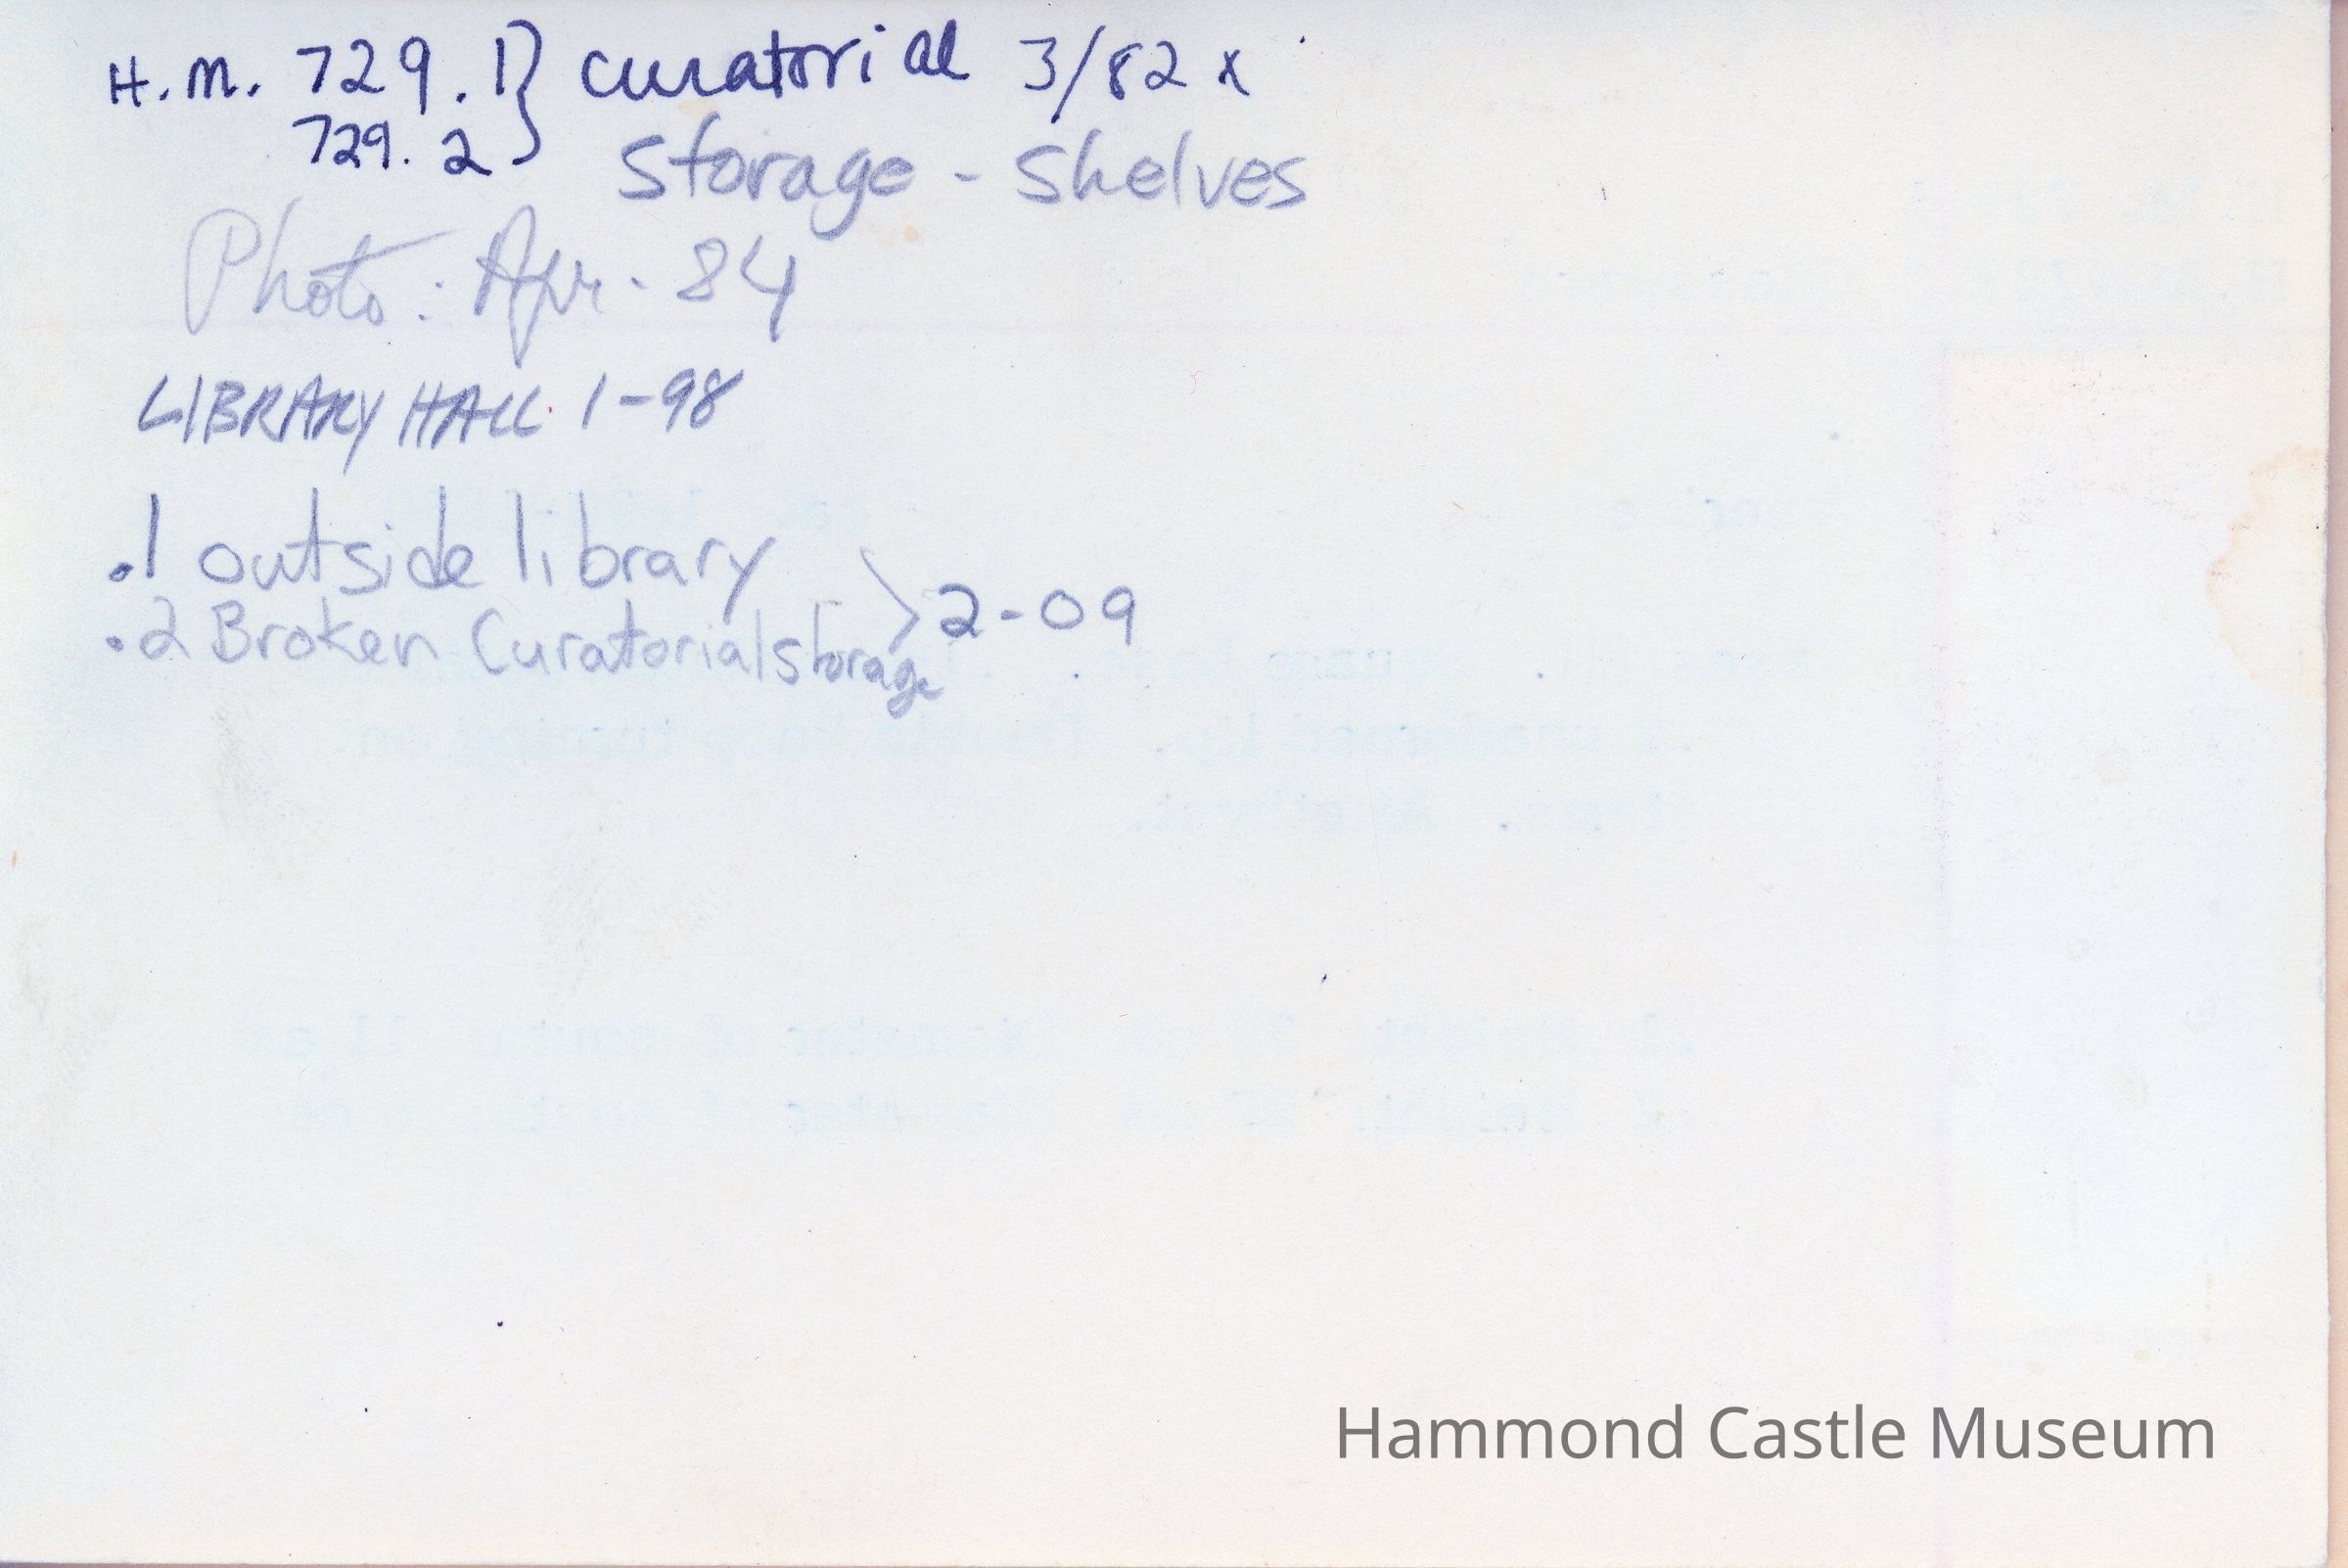 H.M. 729.1} curatorial 3/82 x
729.2} storage - shelves
Photo: Apr. 84
LIBRARY HALL 1-98
.1 outside library
.2 Broken Curatorial storage > 2-09
Hammond Castle Museum